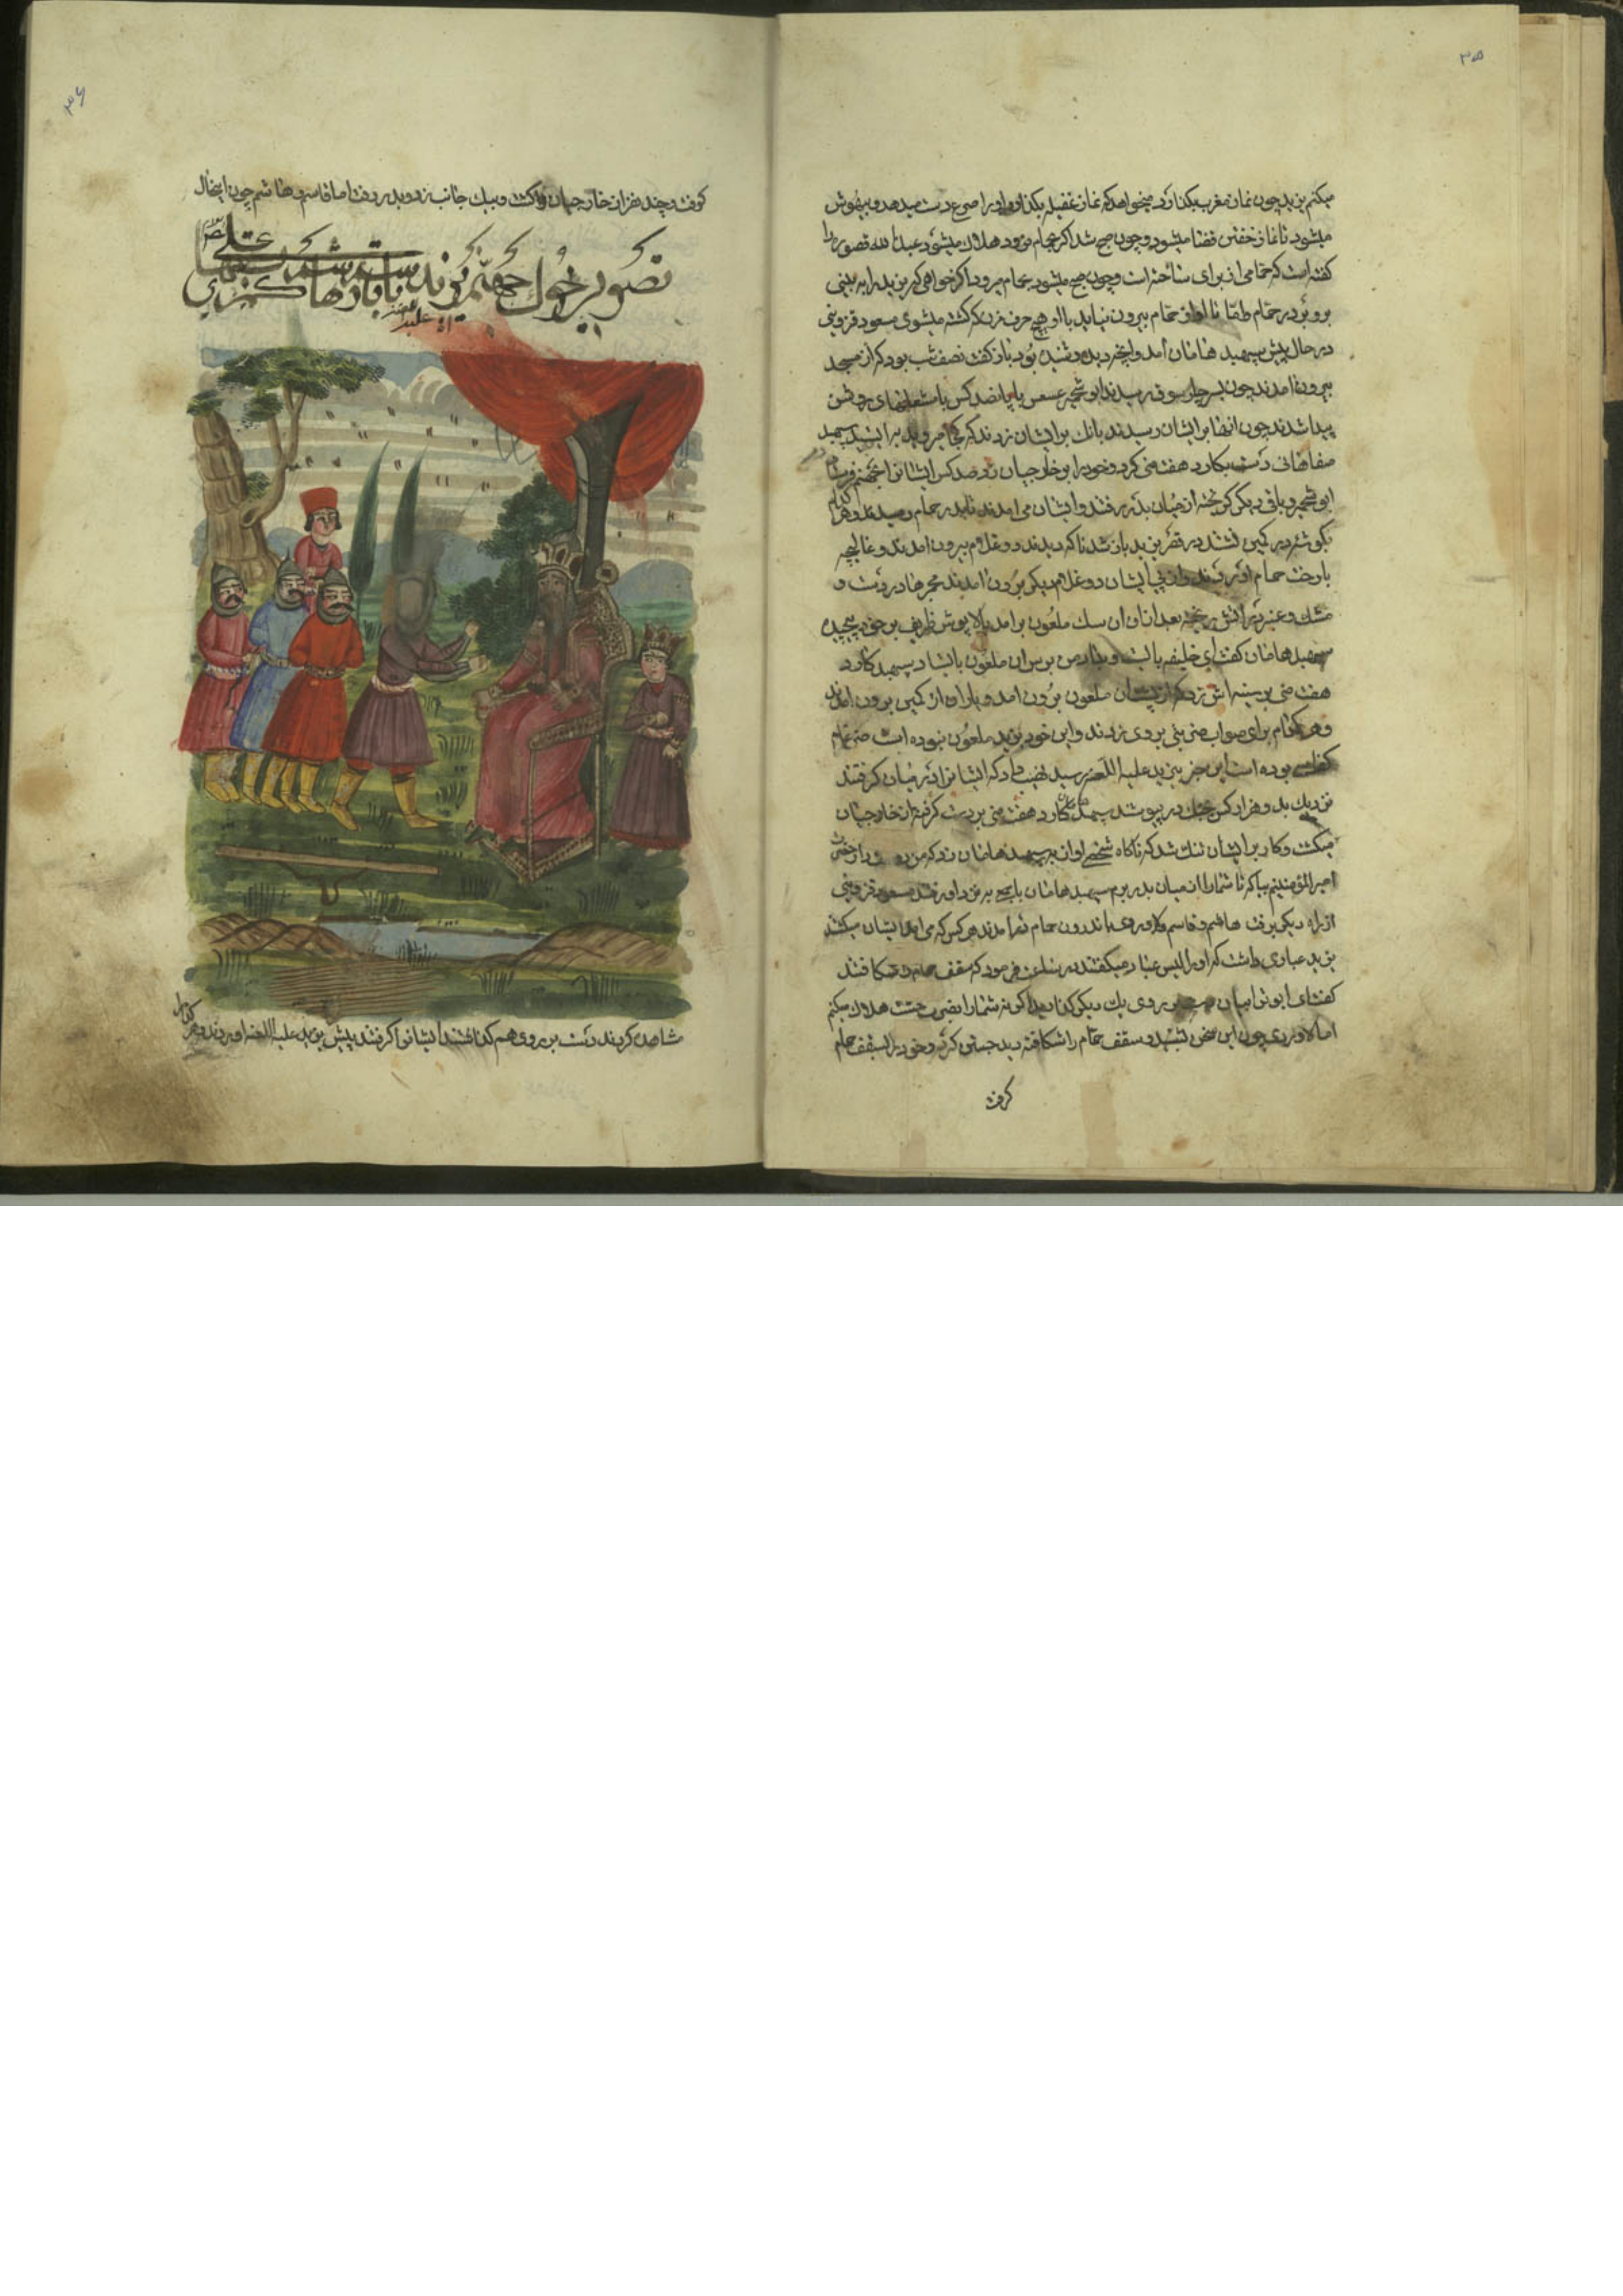 ۳۵
میکنم یزید چون نماز مغرب بکذارد میخواهد که نماز غفیله بکذارد او را صرع دست میدهد و بیهوش
میشود تا نماز خفتن قضا میشود و چون صبح شد اکر بحمام نرود هلاک میشود عبدالله قصور را
کفته است که حمامی از برای ساخته است و چون صبح میشود بحمام میرود اکر خواهی که یزید را به بینی
برو بدر حمام طقا تا او از حمام بیرون نیاید با او هیچ حرف نزن که کشته میشوی مسعود قزوینی
در حال پیش سپهبد هامان آمد و آنچه دیده و شنیده بود باز کفت نصف شب بود که از مسجد
بیرون آمدند چون بسر چارسوق رسیدند ابو شحمه عسس با پانصد کس با مشعلهای روشن
پیدا شدند چون آنها برایشان رسیدند بانک برایشان زدند که بکجا میروید بایستید سپهبد
صفاهانی دست بکارد هفت منی کرد و خود را بر خارجیان زد صد کس ایشانرا بجهنم فرستاد
ابو شحمه و باقی دیکر کریخته از میان بدر رفتند و ایشان می آمدند تا بدر حمام رسیدند و هر کدام
بکوشه در کمین نشستند در قصر یزید باز شد ناکه دیدند دو غلام بیرون آمدند و غالیچه
با رخت حمام آوردند و از پی ایشان دو غلام دیکر بیرون آمدند مجمرها در دست و
مشک و عنبر در آتش ریخته بعد از آن آن سک ملعون برآمد بالاپوش ظریف بر خود پیچیده
سپهبد هامان کفت ای خلیفه بایست آن ملعون بایستاد سپهبد کارد
هفت منی بر سینه اش زد که از پشت آن ملعون بیرون آمد و یاران از کمین بیرون آمدند
و هر کدام برای صواب ضربتی بر وی زدند و این خود یزید ملعون نبوده است
بوده است این خبر بیزید علیه اللعنه رسید نهیب داد که ایشانرا در میان کرفتند
نزدیک بده هزار کس بجنک در پیوستند سپهبد کارد هفت منی بر دست کرفته از خارجیان
میکشت و کار بر ایشان تنک شد که ناکاه شخصی آواز بر سپهبد هامان زد که من
امیرالمؤمنینم بیا که تا شما را از میان بدر برم سپهبد هامان با مسعود قزوینی
از راه دیکر برفت هاشم و قاسم و لاوردی باندرون حمام در آمدند هر کس که می آمد ایشان میکشتند
یزید عیاری داشت که او را الیس عیار میکفتند فرمود که سقف حمام بشکافتند
کفت ای ابوترابیان دست بر روی یک دیکر کذارید اکر نه شما را بضرب خشت هلاک میکنم
اما لاوردی چون این سخن بشنید و سقف حمام را شکافته دید جستن کرد و خود را بسقف حمام
کرفت
۳۶
کرفت و چند نفر از خارجیان را کشت و بیک جانب زد و بدر رفت اما قاسم و هاشم چون اینحال
تصویر
علیه
مشاهده کردند دست بر روی هم کذاشتند ایشانرا کرفتند پیش یزید علیه اللعنه آوردند و هر کدام